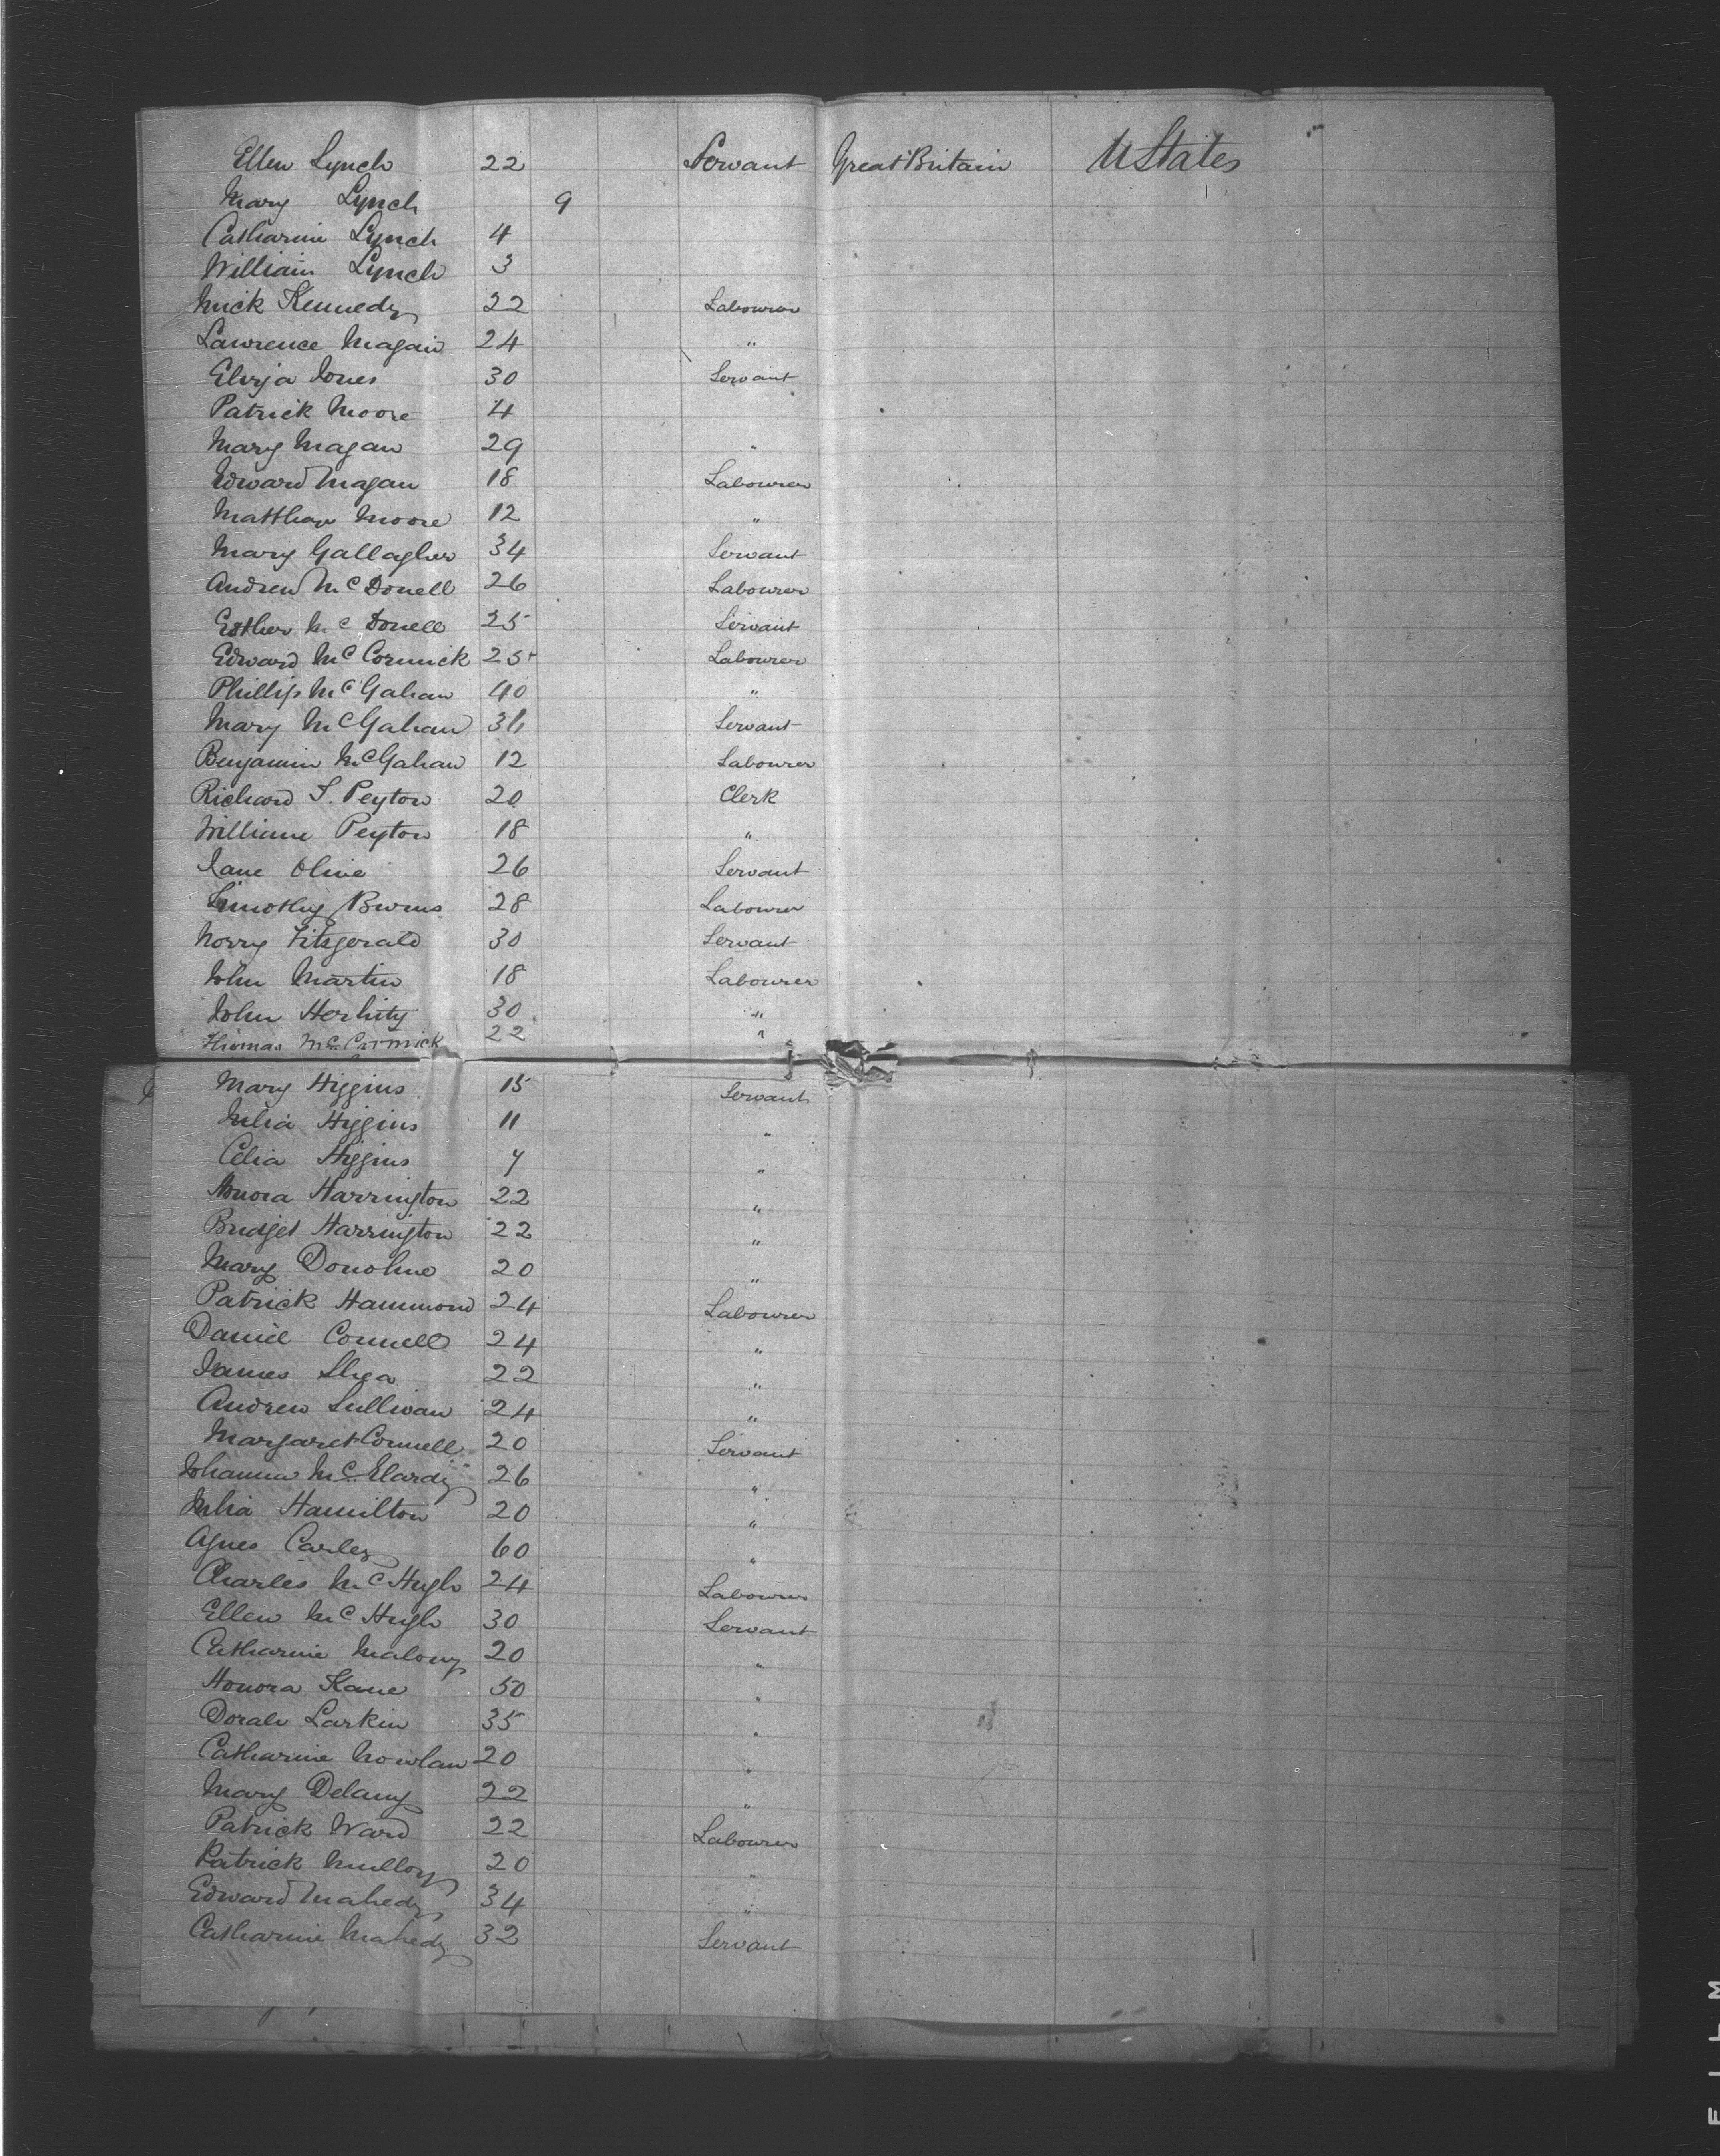 Ellen Lynch 22 Servant Great Britain U States
Mary Lynch 9
Catharine Lynch 4
William Lynch 3
Mick Kennedy 22 Labourer
Lawrence Magan 24 "
Eliza Jones 30 Servant
Patrick Moore 4
Mary Magan 29 "
Edward Magan 18 Labourer
Matthew Moore 12 "
Mary Gallagher 34 Servant
Andrew McDonell 26 Labourer
Esther McDonell 25 Servant
Edward McCormick 25 Labourer
Phillip McGahan 40 "
Mary McGahan 36 Servant
Benjamin McGahan 12 Labourer
Richard S. Peyton 20 Clerk
William Peyton 18 "
Jane Olive 26 Servant
Timothy Burns 28 Labourer
Norry Fitzgerald 30 Servant
John Martin 18 Labourer
John Herlihy 30 "
Thomas McCormick 22 "
Mary Higgins 15 Servant
Julia Higgins 11 "
Celia Higgins 7 "
Honora Harrington 22 "
Bridget Harrington 22 "
Mary Donohue 20 "
Patrick Hammond 24 Labourer
Daniel Connell 24 "
James Shea 22 "
Andrew Sullivan 24 "
Margaret Connell 20 Servant
Johanna 26 "
Julia Hamilton 20 "
Agnes Carley 60 "
Charles McHugh 24 Labourer
Ellen McHugh 30 Servant
Catharine Malony 20 "
Honora Kane 50 "
Dorah Larkin 35 "
Catharine Nowlan 20 "
Mary Delany 22 "
Patrick Ward 22 Labourer
Patrick Mulloy 20 "
Edward Mahedy 34 "
Catharine Mahedy 32 Servant